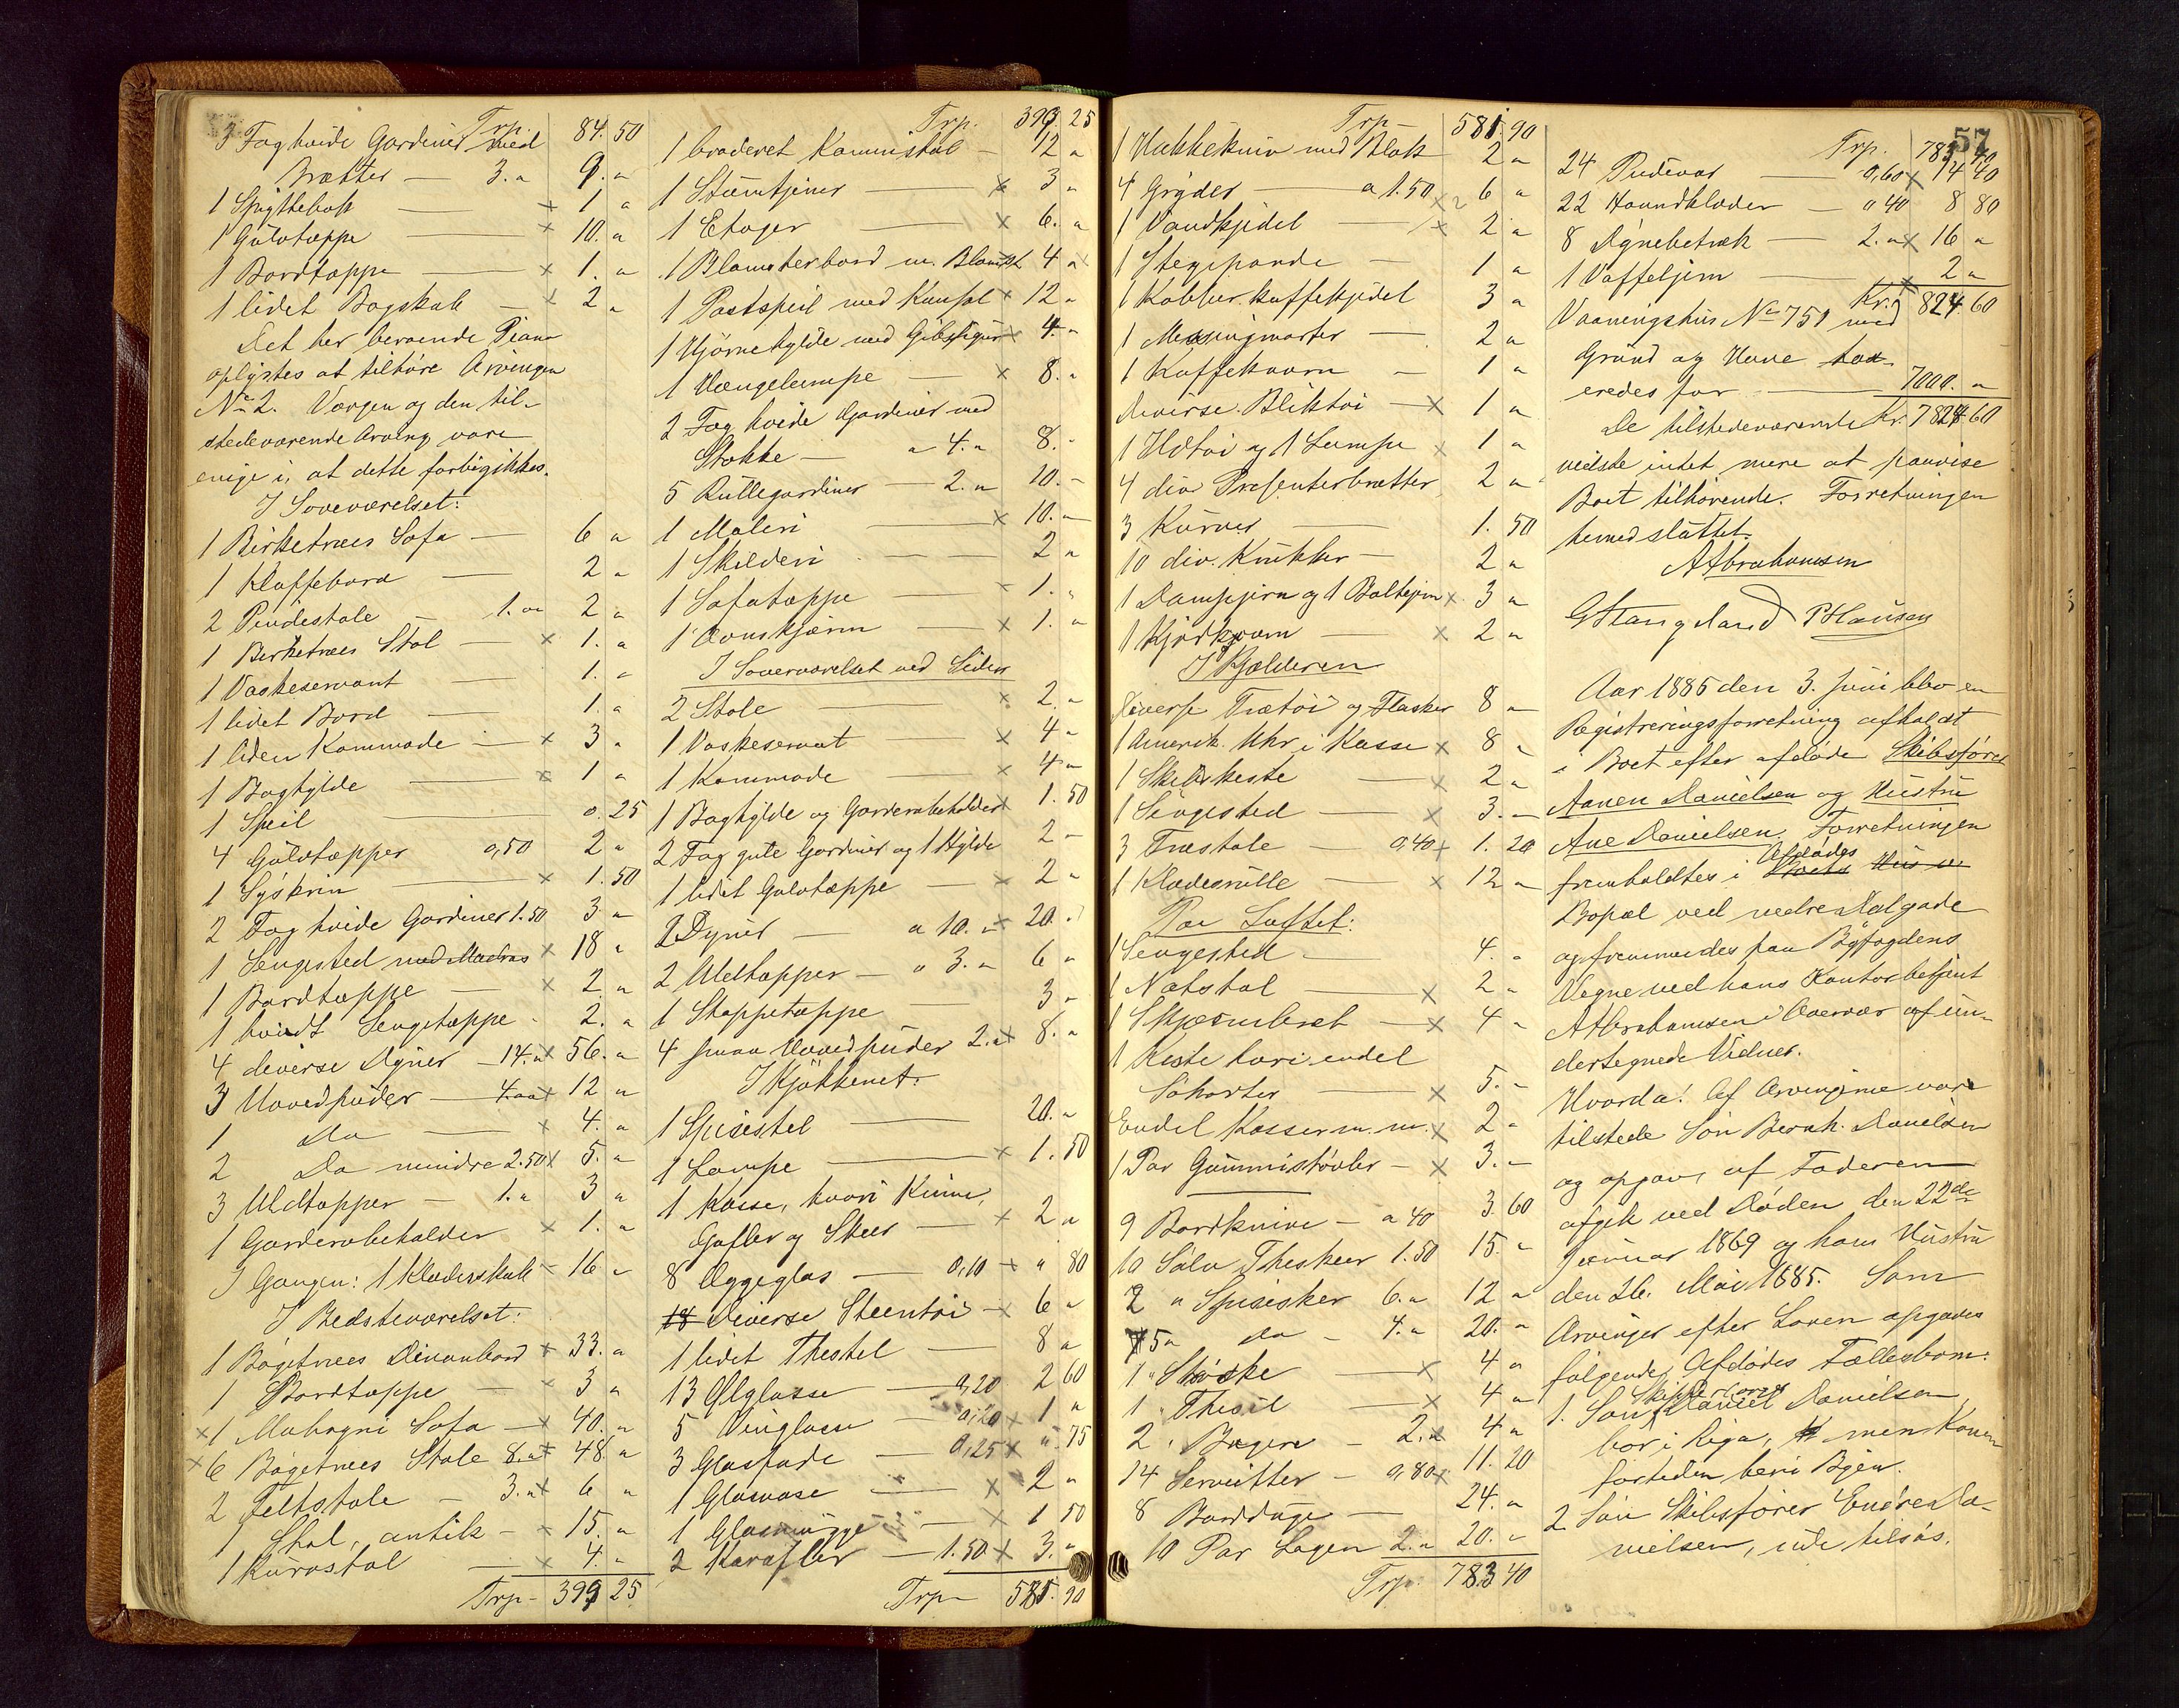 Trp. 84. 50
3 Fag hvide Gardiner med
Brætter — 3. " 9. "
1 Spyttebak — × 1 "
1 Gulvtæppe — × 10. "
1 Bordtæppe — × 1. "
1 lidet Bogskab — × 2 "
Det her beroende Piano
oplystes at tilhöre Arvingen
No 2. Værgen og den til-
stedeværende Arving vare
enige i, at dette forbigikkes.
I Soveværelset:
1 Birketræes Sofa — 6 "
1 Klaffebord — 2 "
2 Pindestole — 1. " 2 "
1 Birketræes Stol — × 1. "
1 Vaskeservant — 1. "
1 lidet Bord — 1. "
1 liden Kommode — × 3 "
1 Boghylde — × 1 "
1 Speil — 0. 25
4 Gulvtæpper 0,50 2 "
1 Syskrin — × 1. 50
2 Fag hvide Gardiner 1.50 3 "
1 Sengested med Madras × 18 "
1 Bordtæppe — × 2. "
1 hvidt Sengetæppe - 2. "
4 diverse Dyner — 14. " × 56. "
3 Hovedpuder — 4. " × 12 "
1 Do — × 4. "
2 Do mindre 2.50 × 5. "
3 Uldtæpper — 1. " 3 "
1 Garderobeholder × 1. "
I Gangen: 1 Klædesskab — 16 "
I Bedsteværelset:
1 Bøgetræes Divanbord × 33. "
1 Bordtæppe — × 3 "
× 1 Mahogni Sofa — × 40. "
× 6 Bøgetræes Stole 8. " × 48. "
2 Feltstole — 3. " × 6 "
1 Stol, antik — × 15. "
1 Kurvstol — × 4. "
Trp - 399 25
Trp. 399. 25
1 broderet Kaminstol — 12 "
1 Stumtjener — × 3 "
1 Etager — × 6. "
1 Blomsterbord m. Blomst 4 " ×
1 Postspeil med Konsol × 12 "
1 Hjørnehylde med Gibsfigur × 4. "
1 Hængelampe — × 8. "
2 Fag hvide Gardiner med
Stokke — " 4. " 8. "
5 Rullegardiner — 2. " 10. "
1 Maleri — × 10. "
1 Skilderi — 2 "
1 Sofatæppe — 1. "
1 Ovnskjærm — × 1. "
I Soveværelset ved Siden
2 Stole — × 2. "
1 Vaskeservant — × 4 "
1 Kommode — × 4 "
1 Boghylde og Garderobeholder × 1. 50
2 Fag gule Gardiner og 1 Hylde 2 "
1 lidet Gulvtæppe — × 2 "
2 Dyner — a 10. " × 20. "
2 Uldtæpper — " 3. " 6 "
1 Stoppetæppe 3 "
4 smaa Hovedpuder 2. " × 8. "
I Kjökkenet:
1 Spisestel — 20. "
1 Lampe — × 1. 50
1 Kasse, hvori Knive,
Gafler og Skeer — × 2 "
8 Æggeglas — 0,10 × " 80
18 Diverse Steentöi — × 6 "
1 lidet Thestel — 8 "
13 Ølglasse — 0,20 2 60
5 Vinglasse — 0,20 × 1 "
3 Glasfade — 0,25 × ". 75
1 Glasvase — × 2 "
1 Glasmugge — × 1 50
2 Karafler — 1.50 × 3. "
Trp - 581. 90
Trp - 581. 90
1 Hakkekniv med Blok 2 "
4 Gryder — a 1.50 × 6 "
1 Vandkjedel — × 2. "
1 Stegepande — 1 "
1 Kobber kaffekjedel 3 "
1 Messingmorter — 2 "
1 Kaffekværn — 1 "
Diverse Bliktöi — × 1 "
1 Ildtöi og 1 Lampe × 1 "
4 div Præsenterbrætter 2 "
3 Kurver — 1. 50
10 div. Krukker — 2 "
1 Dampjern og 1 Boltejern × 3 "
1 Kjödkværn — × 2 "
I Kjælderen
Diverse Trætöi og Flasker 8 "
1 Amerik. Uhr i Kasse × 8 "
1 Skibskiste — × 2 "
1 Sengested — × 3. "
3 Træstole — 0,40 × 1. 20
1 Klædesrulle — × 12 "
Paa Loftet:
1 Sengested — 4. "
1 Natstol — × 2 "
1 Skjærmbræt — × 4 "
1 Kiste hvori endel
Sökarter — × 5. "
Endel Kasser m. m. × 2 "
1 Par Gummistövler — × 3. "
9 Bordknive — a 40 3. 60
10 Sölv Theskeer 1.50 15. "
2 " Spiseskeer 6. " 12 "
5 " do - 4. " 20. "
1 " Stöske — × 4 "
1 " Thesil — × 4 "
2 " Bægere — 2. " 4 "
14 Servietter — 0,80 × 11. 20
8 Bordduge — 24. "
10 Par Lagen 2. " 20. "
Trp. 783 40
57
Trp. 783 40
24 Pudevar — 0,60 × 14 40
22 Haandklæder — " 40 8 80
8 Dynebetræk — 2. " × 16 "
1 Vaffeljern — × 2 "
Kr. 824 60
Vaaningshus No 751 med
Grund og Have tax-
eredes for — 7000. "
Kr. 7824 60
De tilstedeværende
vidste intet mere at paavise
Boet tilhörende. Forretningen
hermed sluttet.
A Abrahamsen
G Stangeland P Hansen
Aar 1885 den 3. Juni blev en
Registreringsforretning afholdt
i Boet efter afdøde Skibsfører
Aanen Danielsen og Hustru
Ane Danielsen. Forretningen
fremholdtes i Boets Afdødes Hus v.
Bopæl ved nedre Dalgade
og fremmedes paa Byfogdens
Vegne ved hans Kontorbetjent
A Abrahamsen i Overvær af un-
dertegnede Vidner.
Hvorda! Af Arvingerne vare
tilstede Sön Bernh. Danielsen
og opgav, at Faderen
afgik ved Døden den 22de
Januar 1869 og hans Hustru
den 26. Mai 1885. Som
Arvinger efter Loven opgaves
fölgende, Afdödes Fællesbørn:
1. Sön, Skibsförer Daniel Danielsen,
bor i Riga, men Konen
fortiden her i Byen.
2. Sön Skibsförer Endre Da-
nielsen, ude tilsös.